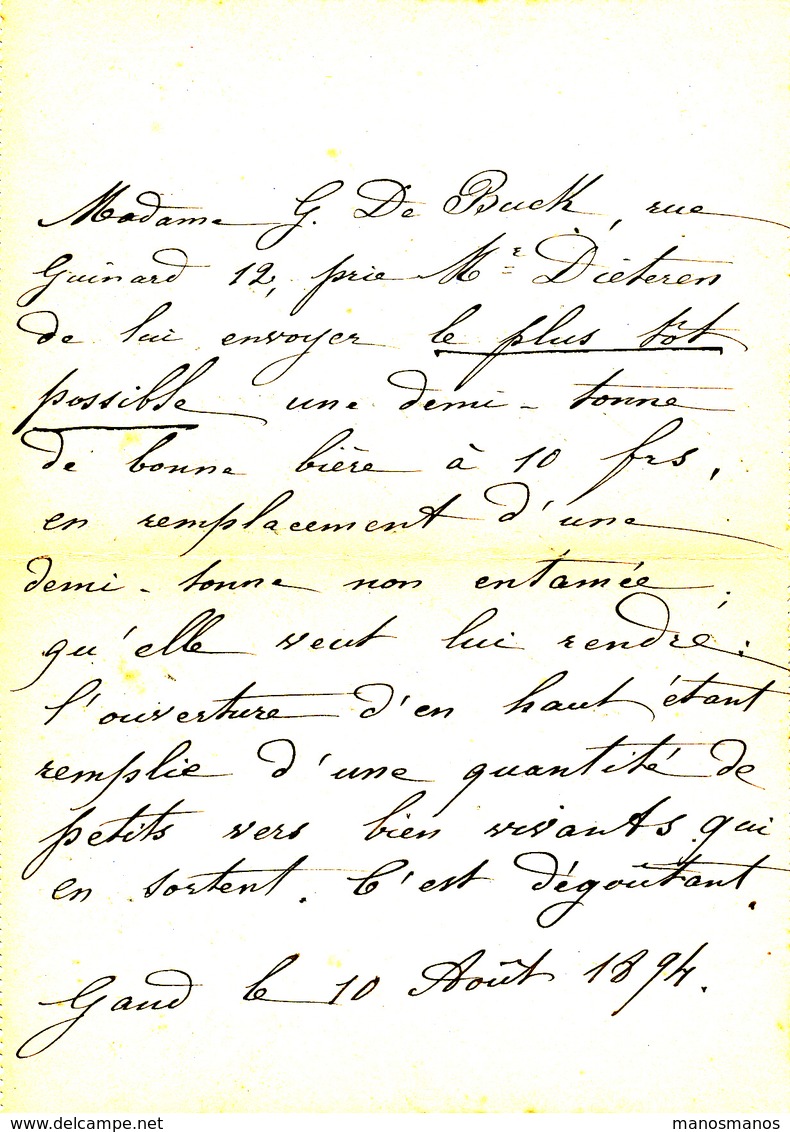 Madame G. De Buck, rue
Guinard 12, prie Mr Dièteren
de lui envoyer le plus tôt
possible une demi-tonne
de bonne bière à 10 frs,
en remplacement d'une
demi-tonne non entamée
qu'elle veut lui rendre:
l'ouverture d'en haut étant
remplie d'une quantité de
petits vers bien vivants qui
en sortent. C'est dégoûtant.
Gand le 10 Août 1894.
www.delcampe.net
manosmanos